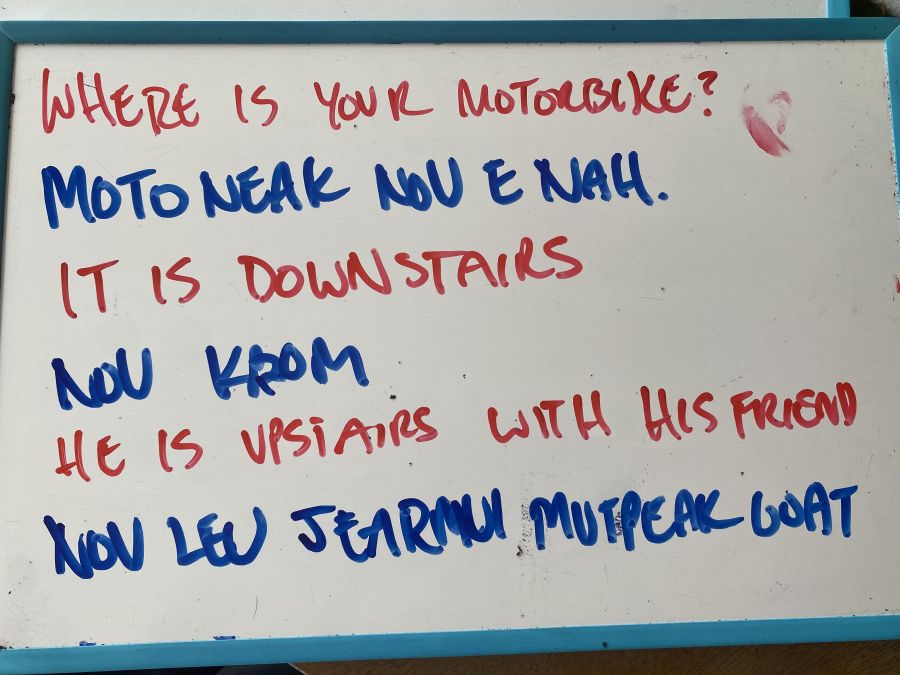 WHERE IS YOUR MOTORBIKE?
MOTO NEAK NOU E NAH.
IT IS DOWNSTAIRS
NOU KROM
HE IS UPSTAIRS WITH HIS FRIEND
NOU LEU JEARMUI MUTPEAK GOAT